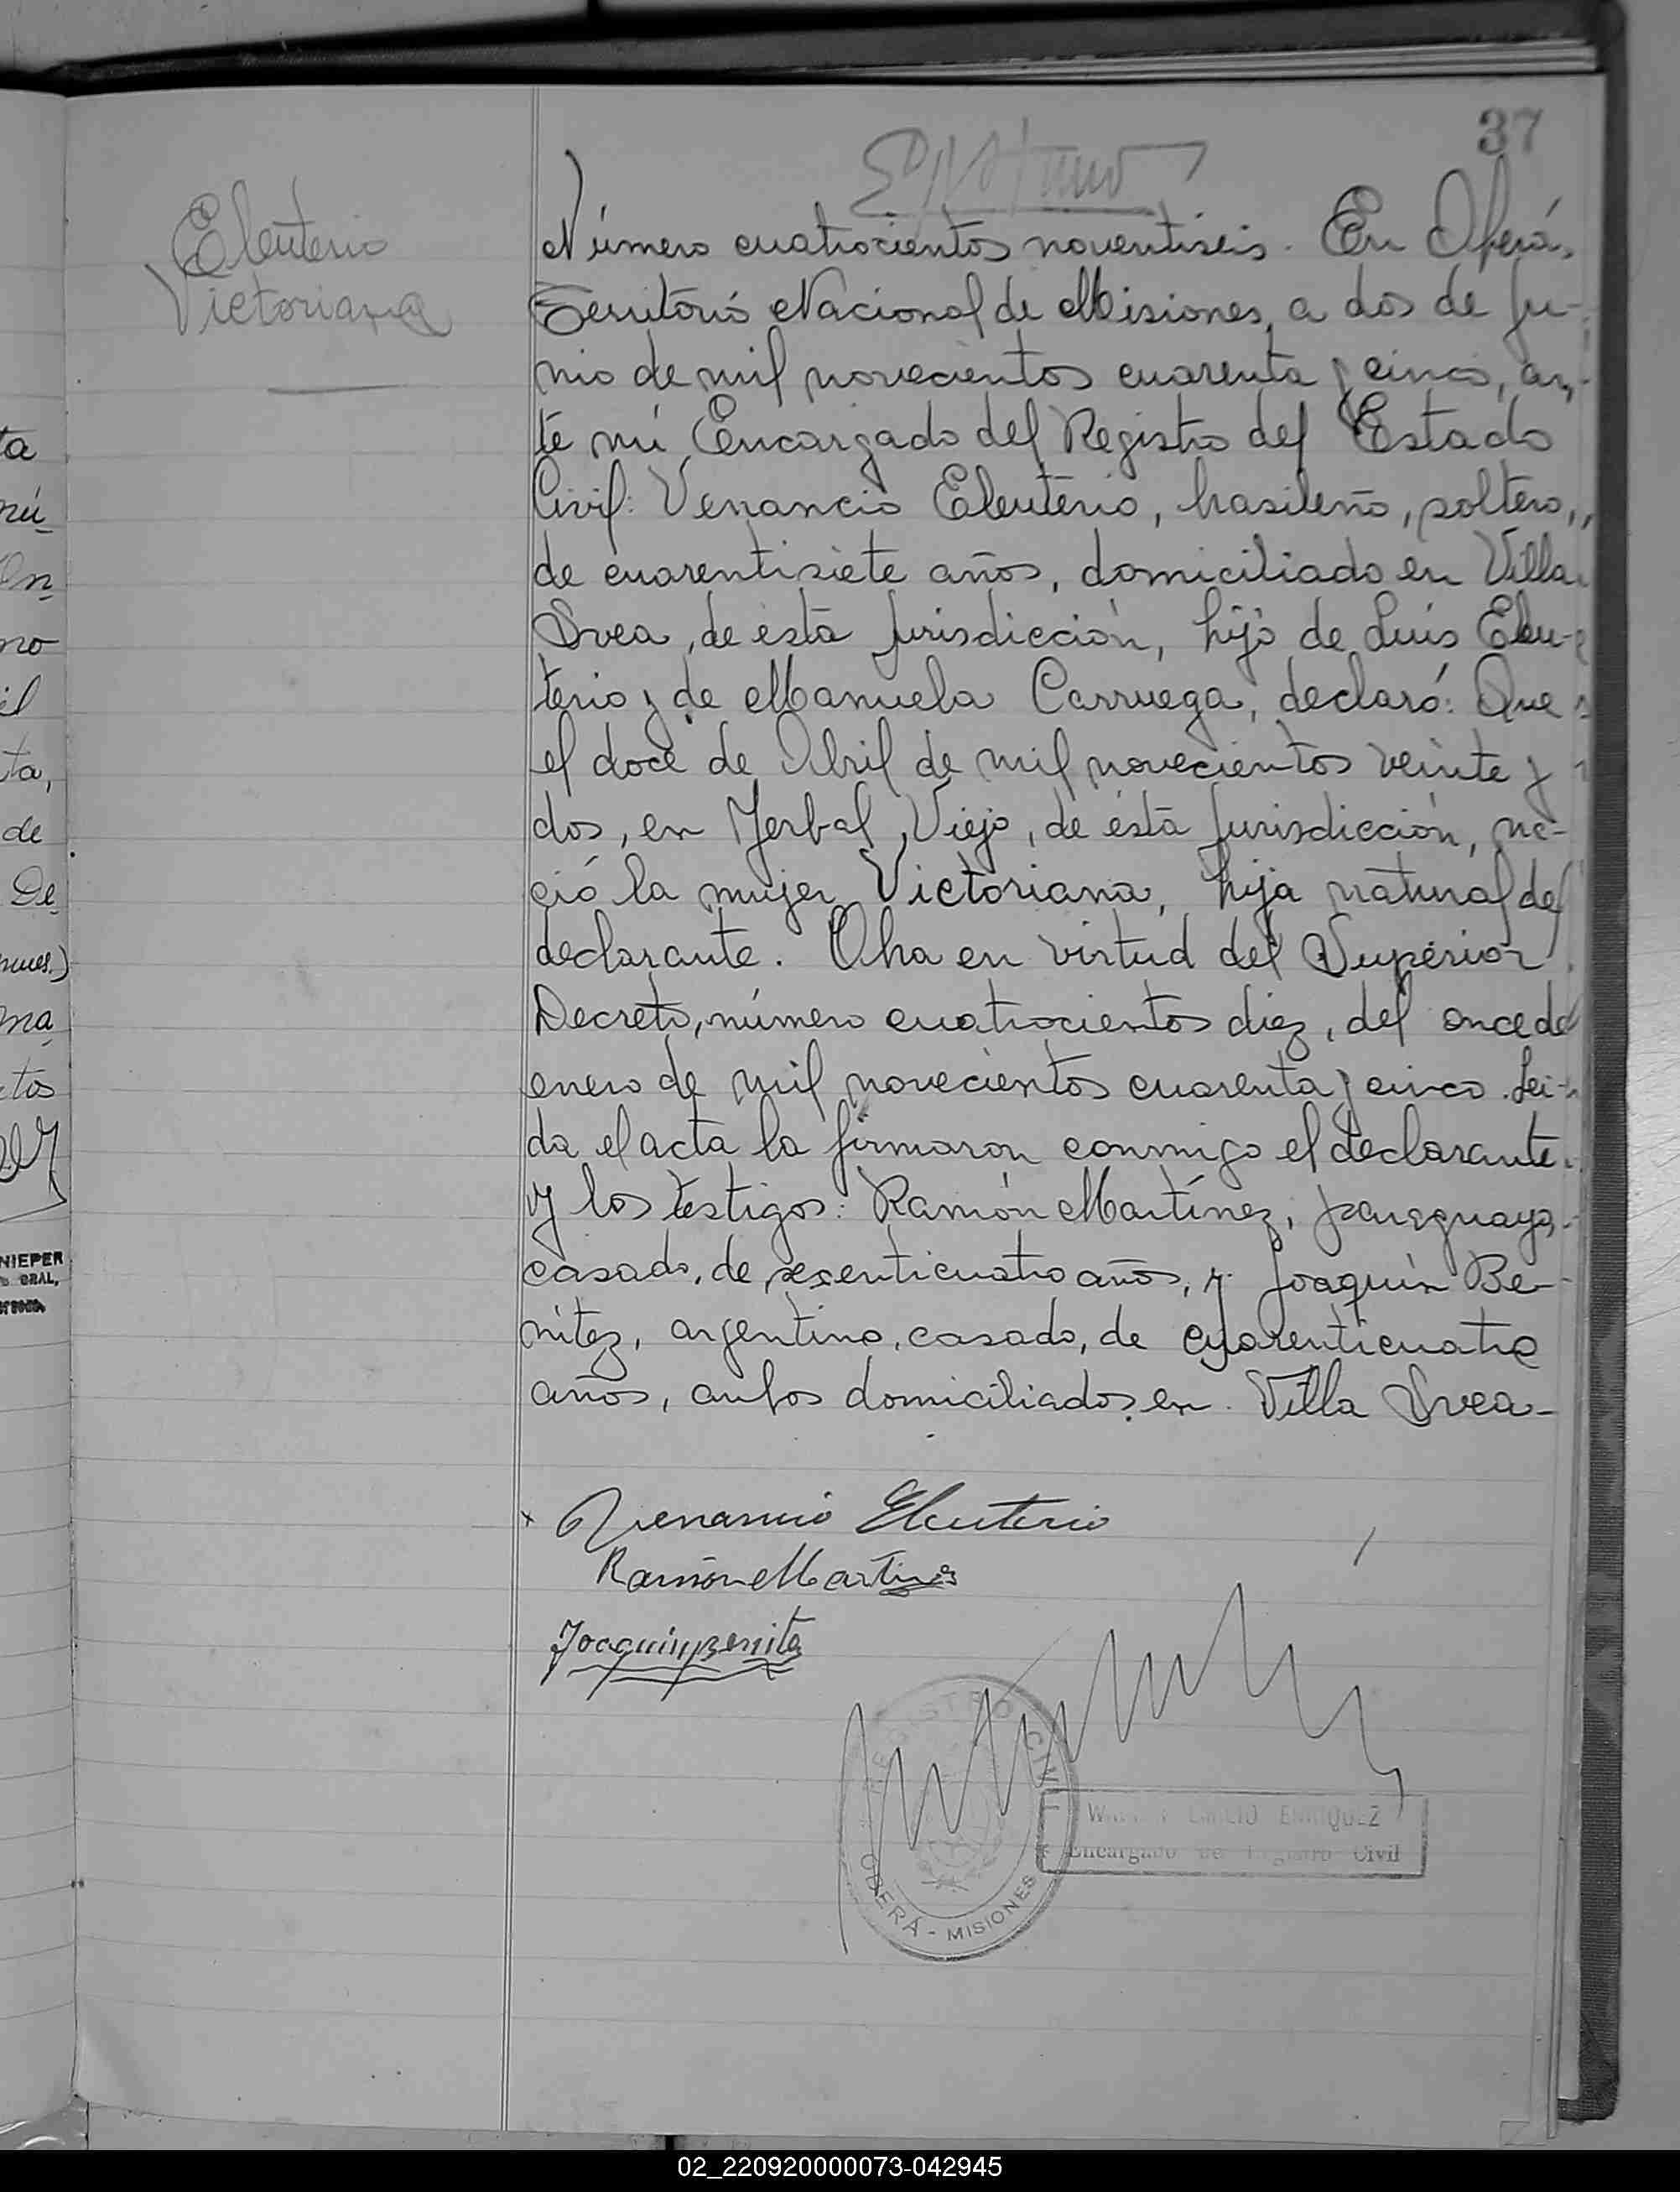 37
Eleuterio
Victoriana
Número cuatrocientos noventiseis. En Oberá,
Territorio Nacional de Misiones, a dos de Ju-
nio de mil novecientos cuarenta y cinco, an-
te mí Encargado del Registro del Estado
Civil: Venancio Eleuterio, brasileño, soltero,
de cuarentisiete años, domiciliado en Villa
Svea, de ésta Jurisdicción, hijo de Luis Eleu-
terio y de Manuela Carruega, declaró: Que
el doce de Abril de mil novecientos veinte y
dos, en Yerbal Viejo, de ésta Jurisdicción, na-
ció la mujer Victoriana, hija natural del
declarante. Obra en virtud del Superior
Decreto, número cuatrocientos diez, del once de
enero de mil novecientos cuarenta y cinco. Lei-
da el acta la firmaron conmigo el declarante
y los testigos: Ramón Martínez, paraguayo,
casado, de sesenticuatro años, y Joaquín Be-
nitez, argentino, casado, de cuarenticuatro
años, ambos domiciliados en Villa Svea-
x Venancio Eleuterio
Ramón Martinez
Joaquin Benitez
REGISTRO CIVIL
OBERÁ - MISIONES
EMILIO ENRIQUEZ
Encargado de Registro Civil
ta
nú-
En
no
il
ta,
de
De-
nues.)
ma
tos
NIEPER
GRAL,
02_220920000073-042945